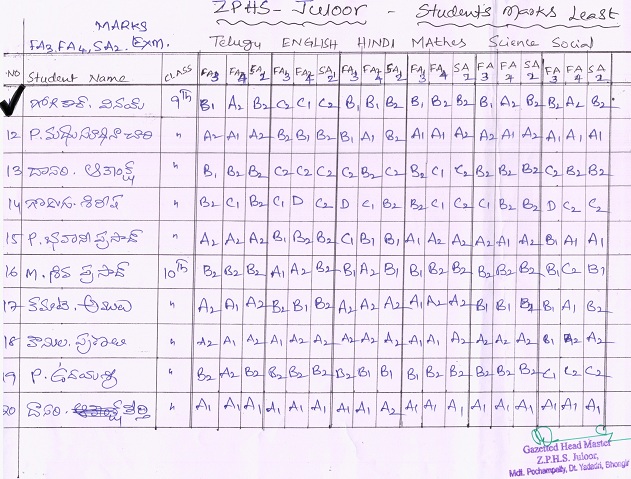 ZPHS- Juloor - Student's Marks Least
MARKS
FA3, FA4, SA2. EXM. Telugu ENGLISH HINDI MAthes Science Social
NO Student Name CLASS FA3 FA4 SA2 FA3 FA4 SA2 FA3 FA4 SA2 FA3 FA4 SA2 FA3 FA4 SA2 FA3 FA4 SA2
వినయ్ 9th B1 A2 B2 C2 C1 C2 B1 B1 B2 B1 B2 B2 B1 A2 B2 B2 A2 B2
12 P. " A2 A1 A2 B2 B1 B2 B1 A1 B2 A1 A1 A2 A2 A1 A2 A1 A1 A1
13 దాసరి. " B1 B2 B2 C2 C2 C2 C2 B2 C2 B2 C1 C2 B2 B2 B2 C2 B2 B2
14 " B2 C1 B2 C1 D C2 D C1 B2 B2 C1 C2 C1 B2 B2 D C2 C2
15 P. భవాని ప్రసాద్ " A2 A2 A2 B1 B2 B2 C1 B1 B1 A1 A2 A2 A2 A2 A2 B1 A1 A1
16 M. శివ ప్రసాద్ 10th B2 B2 B2 A1 A2 B2 B1 A2 B1 B2 B2 B2 B2 B2 B2 B1 C2 B1
17 " A2 A1 A2 B2 B1 B2 A2 A2 A2 A2 A2 A2 B1 B1 B2 B1 A1 B2
18 " A2 A1 A2 A2 A1 A2 A2 A1 A2 A1 A1 A2 A2 A2 A2 B1 A2 A2
19 P. " B2 A2 B2 B2 B2 B2 B2 B1 B1 B1 B2 B2 B2 B2 B2 C1 C2 C2
20 దాసరి. " A1 A1 A1 A1 A1 A1 A1 A1 A2 A1 A1 A1 A1 A1 A1 A1 A1 A1
Gazetted Head Master
Z.P.H.S. Juloor,
Mdl. Pochampally, Dt. Yadadri, Bhongir